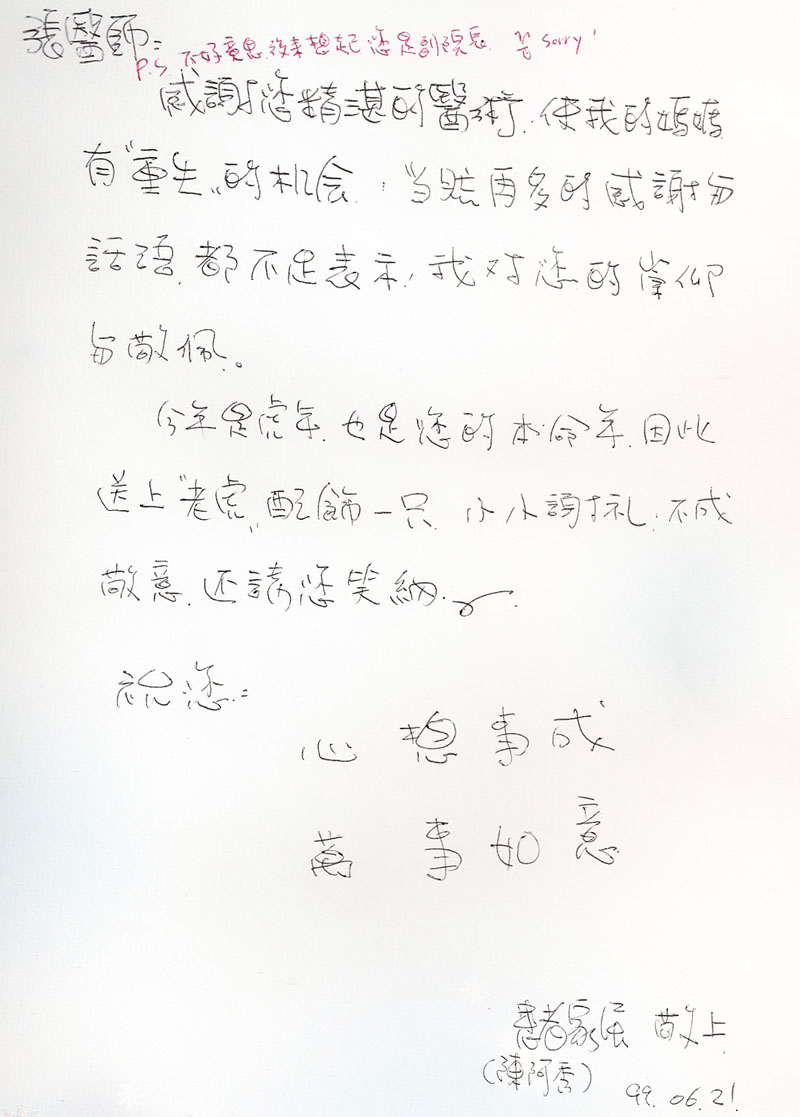 張醫師:
P.S. 不好意思,後來想起您是副院長 苦 Sorry!
感謝您精湛的醫術,使我的媽媽
有"重生"的机会;当然再多的感謝与
話语,都不足表示,我对您的崇仰
与敬佩。
今年是虎年,也是您的本命年,因此
送上"老虎"配飾一只,小小謝礼,不成
敬意,还請您笑納.
祝您:
心想事成
萬事如意
患者家属 敬上
(陳阿秀)
99.06.21